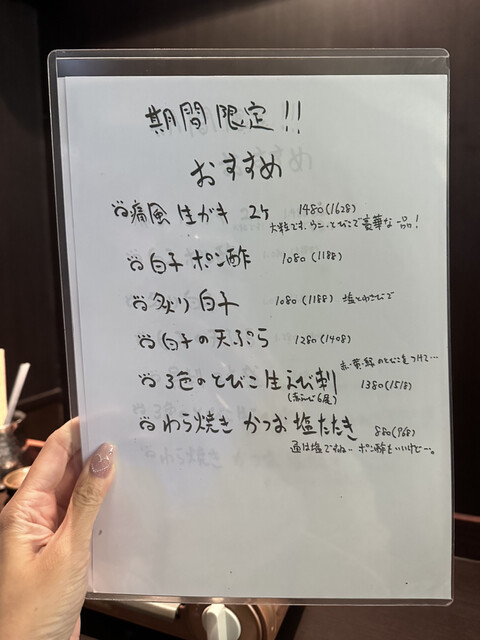 期間限定!!
おすすめ
痛風 生ガキ 2ケ 1480(1628)
大粒です、ウニ、とびこで豪華な一品!
白子 ポン酢 1080(1188)
炙り 白子 1080(1188) 塩とわさびで
白子の天ぷら 1280(1408)
赤・黄・緑のとびこをつけて…
3色のとびこ 生えび刺 1380(1518)
(赤えび6尾)
わら焼き かつお 塩たたき 880(968)
通は塩ですね… ポン酢もいいけど…。